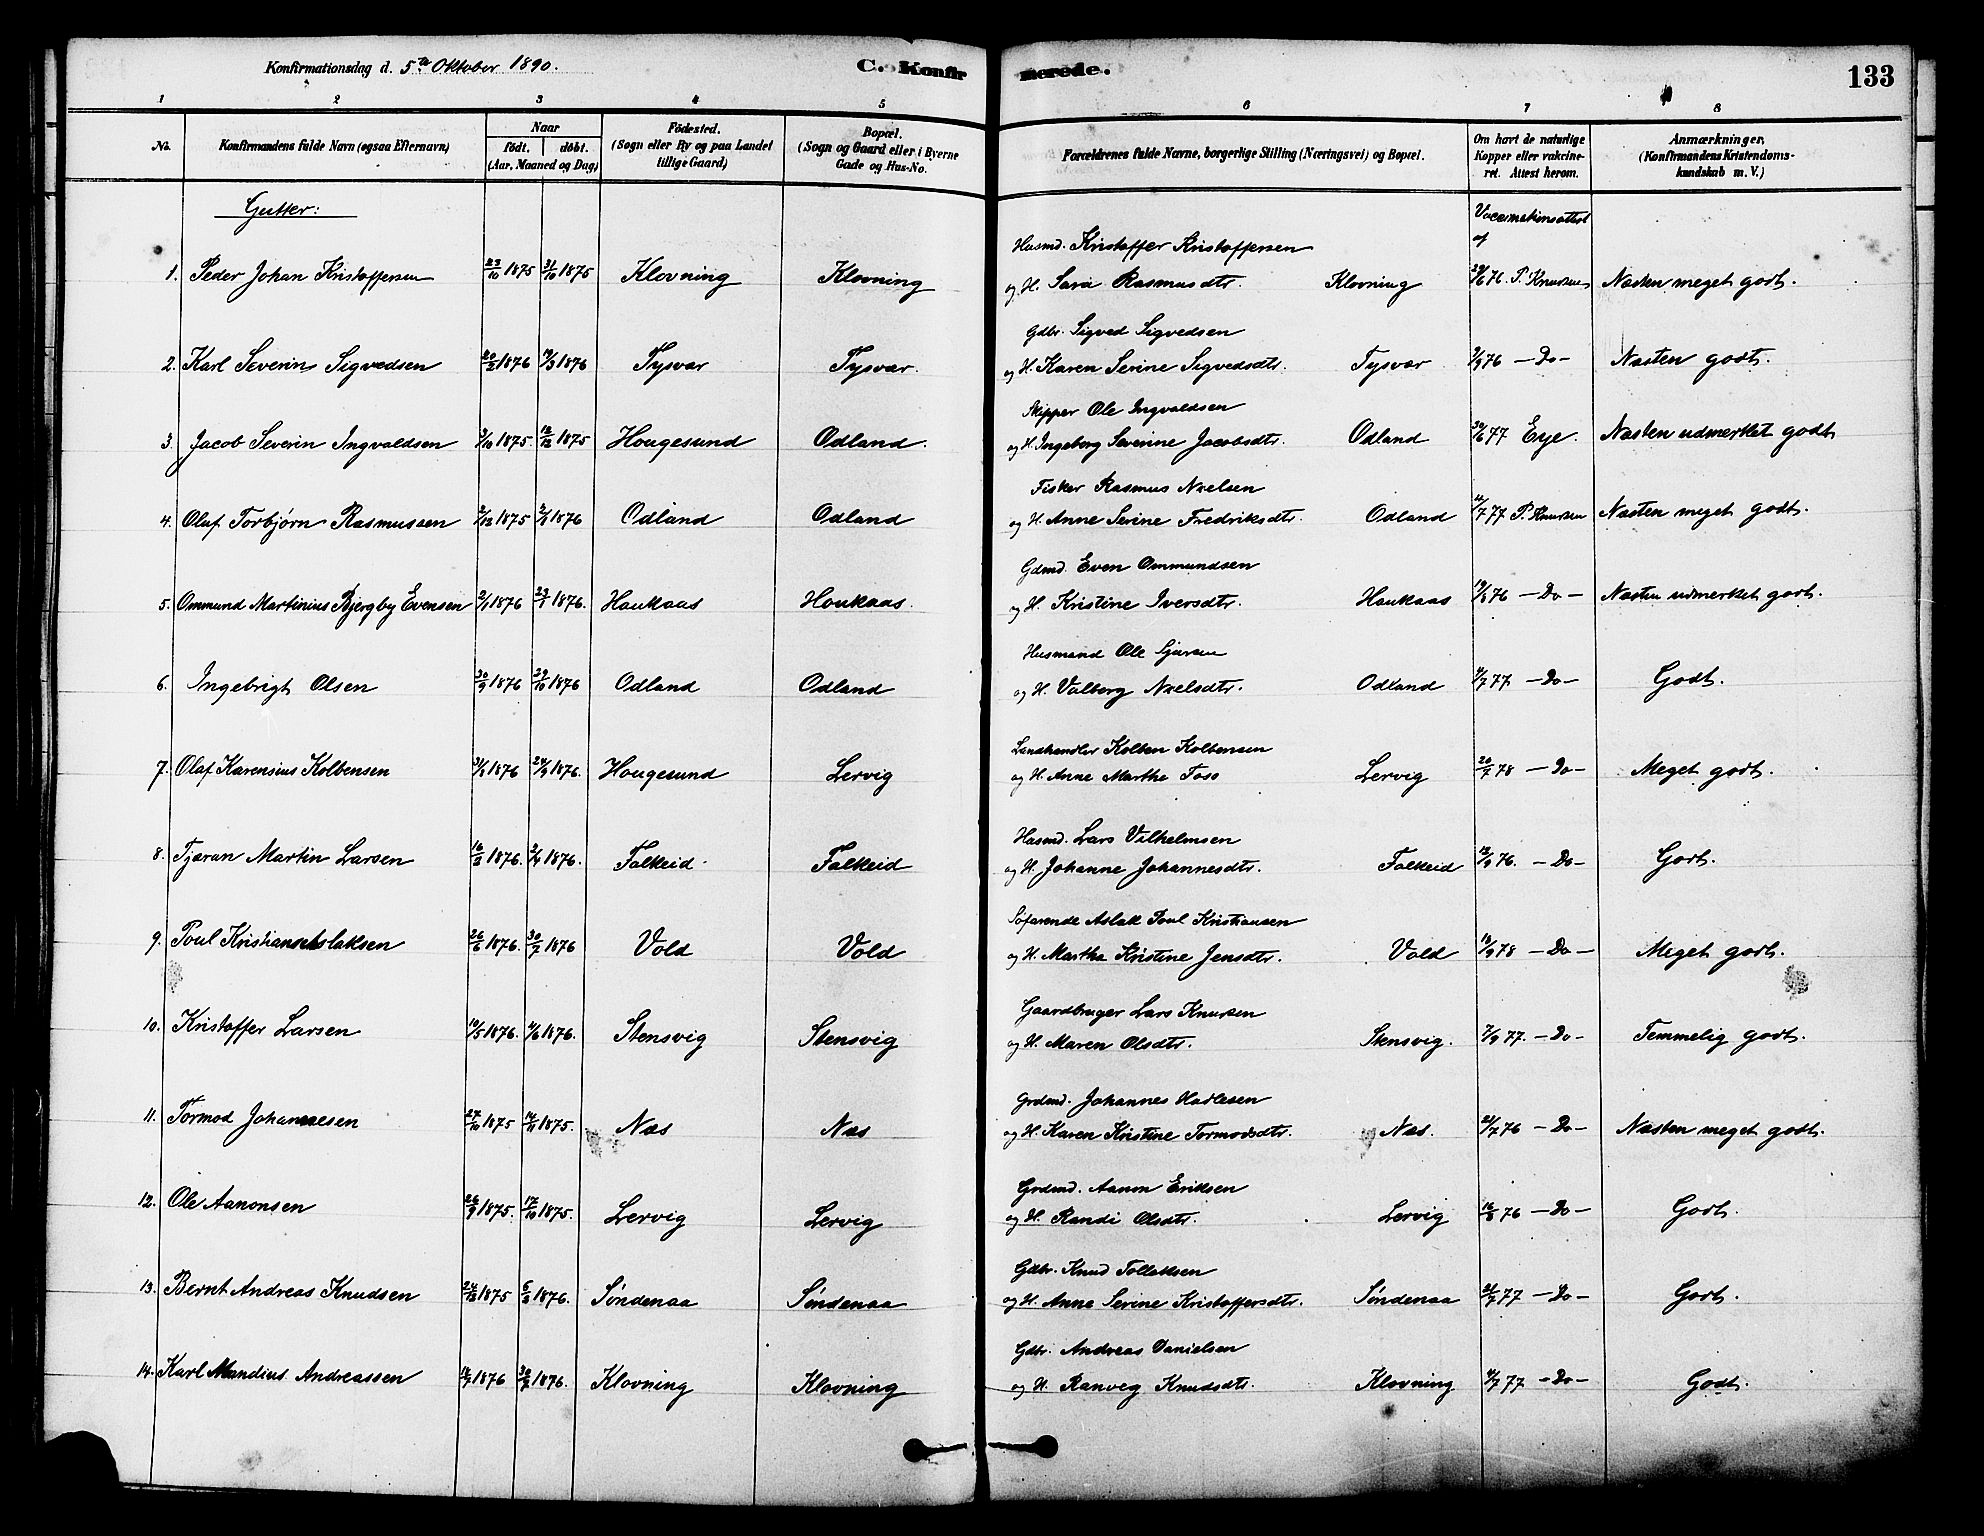 Konfirmationsdag d. 5te Oktober 1890. C. Konfirmerede. 133
1 2 3 4 5 6 7 8
No. Konfirmandens fulde Navn (ogsaa Efternavn) Naar født. døbt. (Aar, Maaned og Dag) Fødested. (Sogn eller By og paa Landet tillige Gaard) Bopæl. (Sogn og Gaard eller i Byerne Gade og Hus-No. Forældrenes fulde Navne, borgerlige Stilling (Næringsvei) og Bopæl. Om havt de naturlige Kopper eller vakcineret. Attest herom. Anmærkninger, (Konfirmandens Kristendomskundskab m. V.)
Gutter: Vaccinationsattest af
Husmd. Kristoffer Kristoffersen
1. Peder Johan Kristoffersen 23/10 1875 31/10 1875 Klovning Klovning og H. Sara Rasmusdtr. Klovning 29/6 76. P. Knutsen Næsten meget godt.
Gdbr. Sigved Sigvedsen
2. Karl Severin Sigvedsen 20/2 1876 19/3 1876 Tysvær Tysvær. og H. Karen Serine Sigvedsdtr. Tysvær 9/9 76 - Do - Næsten godt.
Skipper Ole Ingvaldsen
3. Jacob Severin Ingvaldsen 3/10 1875. 12/12 1875 Hougesund Odland. og H. Ingeborg Severine Jacobsdtr. Odland 30/6 77 Eye. Næsten udmerket godt
Fisker Rasmus Nielsen
4. Oluf Torbjørn Rasmussen 2/12 1875 2/1 1876 Odland Odland og H. Anne Serine Fredriksdtr. Odland 11/7 77 P. Knutsen Næsten meget godt.
Gdmd. Even Ommundsen
5. Ommund Martinius Bjergby Evensen 2/1 1876 23/1 1876. Haukaas Houkaas. og H. Kristine Iversdtr. Haukaas 19/8 76 - Do - Næsten udmerket godt.
Husmand Ole
6. Ingebrigt Olsen 30/9 1876 29/10 1876 Odland Odland og H. Valborg Nielsdtr. Odland 11/7 77 - Do - Godt.
Landhandler Kolben Kolbensen
7. Olaf Karensius Kolbensen 3/9 1876 24/9 1876. Hougesund Lervig og H. Anne Marthe Foss Lervig 20/7 78 - Do - Meget godt.
Husmd. Lars Vilhelmsen
8. Tjeran Martin Larsen 16/3 1876. 2/4 1876. Falkeid Falkeid og H. Johanne Johannesdtr. Falkeid 12/9 76. - Do - Godt.
Søfarende Aslak Poul Kristiansen
9. Poul Kristian Aslaksen 26/6 1876. 30/7 1876 Vold Vold og H. Martha Kristine Jensdtr. Vold 19/9 78 - Do - Meget godt.
Gaardbruger Lars Knutsen
10. Kristoffer Larsen 10/5 1876. 4/6 1876. Stensvig Stensvig og H. Maren Olsdtr. Stensvig. 7/9 77. - Do - Temmelig godt.
Grdmd. Johannes Hadlesen
11. Tormod Johannesen 27/10 1875 14/11 1875. Næs Næs og H. Karen Kristine Tormodsdtr. Næs. 21/7 76 - Do - Næsten meget godt.
Grdmd. Aanon Eriksen
12. Ole Aanonsen 26/9 1875. 17/10 1875. Lervig Lervig og H. Randi Olsdtr. Lervig 16/8 76 - Do - Godt.
Gdbr. Knud Tollaksen
13. Bernt Andreas Knudsen 24/12 1875 6/2 1876. Søndenaa Søndenaa og H. Anna Serine Kristoffersdtr. Søndenaa 21/7 77 - Do - Godt.
Gdbr. Andreas Danielsen
14. Karl Mandius Andreassen 12/7 1876 30/7 1876. Klovning Klovning og H. Ranveg Knudsdtr. Klovning 11/7 77 - Do - Godt.